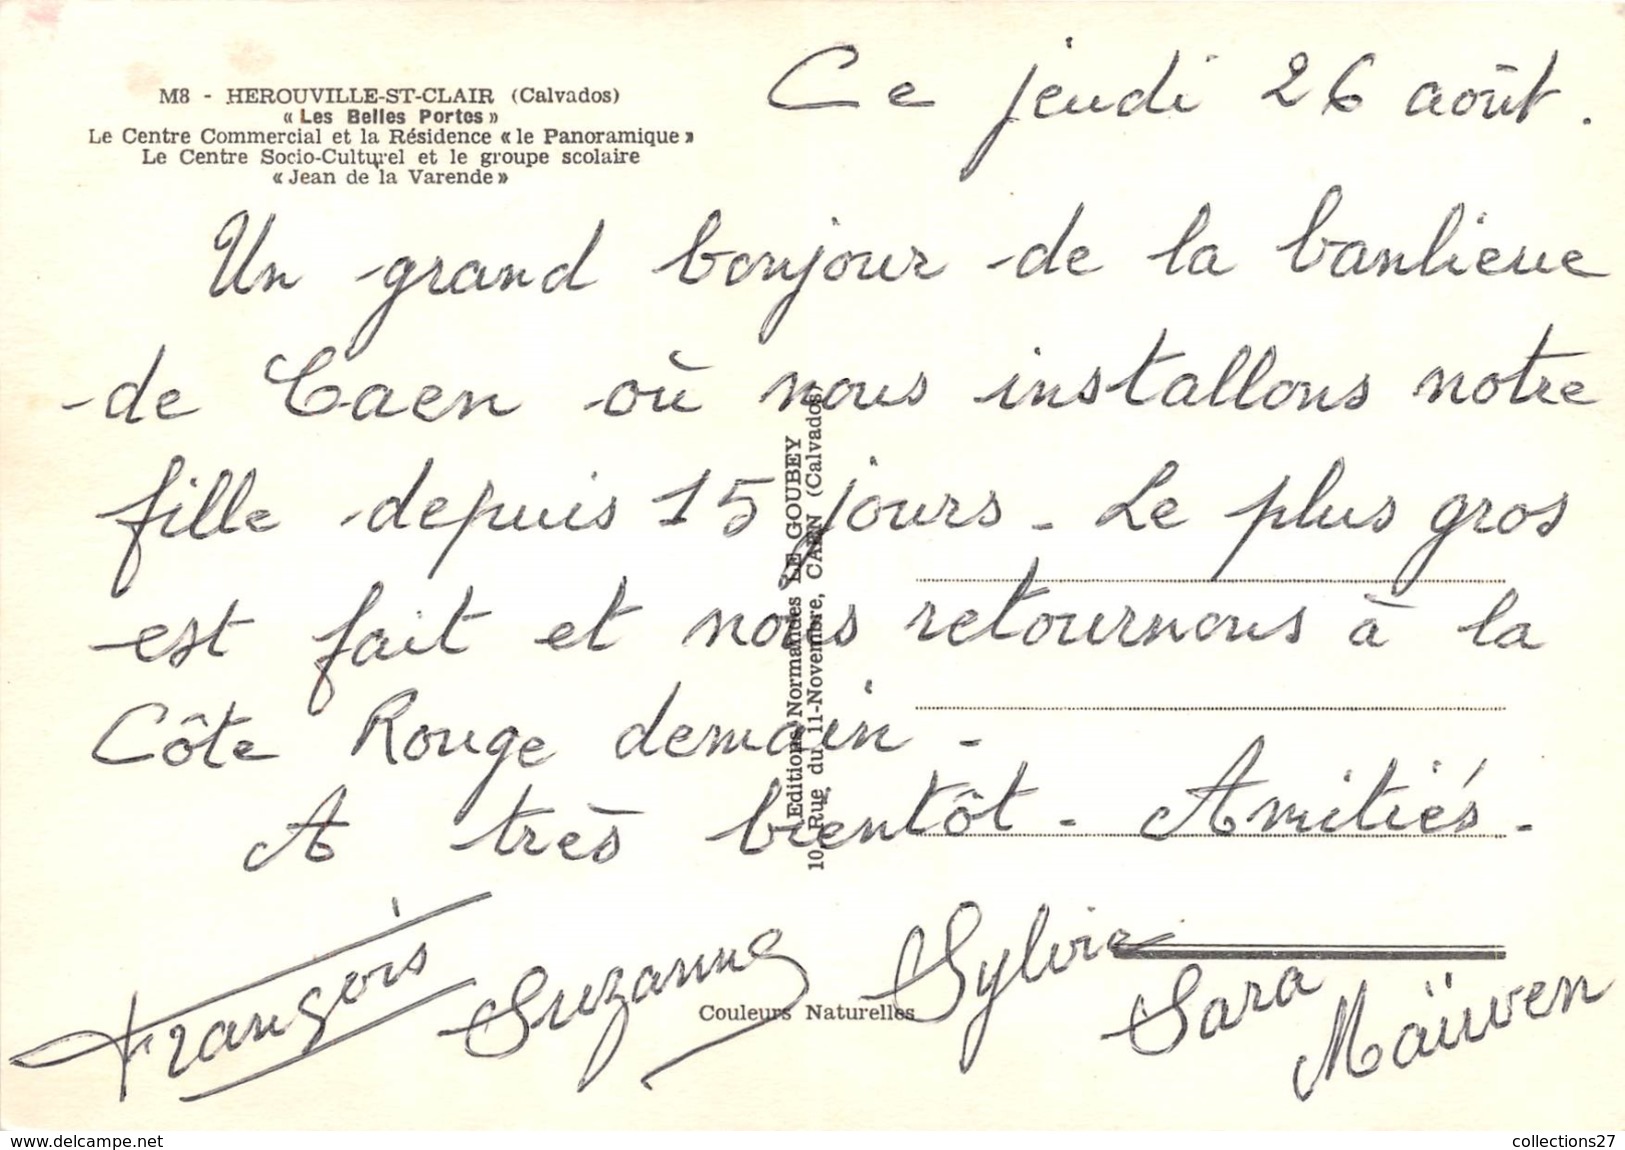 M8 - HEROUVILLE-ST-CLAIR (Calvados)
« Les Belles Portes »
Le Centre Commercial et la Résidence « le Panoramique »
Le Centre Socio-Culturel et le groupe scolaire
« Jean de la Varende »
Ce jeudi 26 août.
Un grand bonjour de la banlieue
de Caen où nous installons notre
fille depuis 15 jours - Le plus gros
est fait et nous retournons à la
Côte Rouge demain -
A très bientôt - Amitiés -
François Suzanne Sylvie Sara Maïwen
Editions Normandes LE GOUBEY
10, Rue du 11-Novembre, CAEN (Calvados)
Couleurs Naturelles
www.delcampe.net
collections27